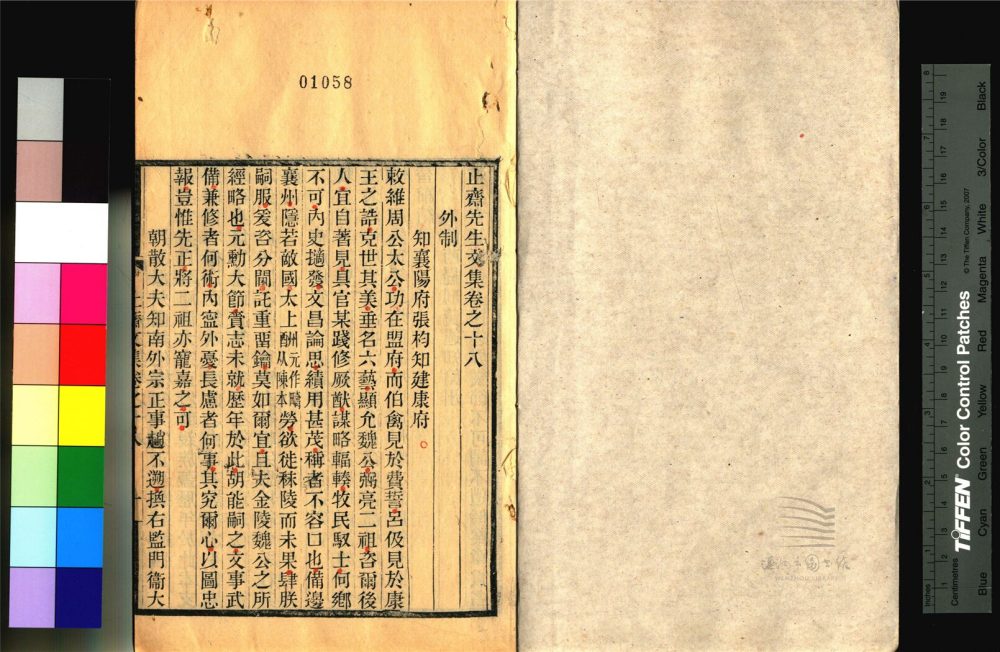 01058
止齋先生文集卷之十八
外制
知襄陽府張杓知建康府
敕維周公太公功在盟府而伯禽見於費誓呂伋見於康
王之誥克世其美垂名六藝顯允魏公弼亮二祖咨爾後
人宜自著見具官某踐修厥猷謀略輻輳牧民馭士何鄉
不可內史摛發文昌論思績用甚茂稱者不容口也備邊
襄州隱若敵國太上酬元作疇從陳本勞欲徙秣陵而未果肆朕
嗣服爰咨分閫託重畱鑰莫如爾宜且夫金陵魏公之所
經略也元勳大節賫志未就歷年於此胡能嗣之文事武
備兼修者何術內寍外憂長慮者何事其究爾心以圖忠
報豈惟先正將二祖亦寵嘉之可
朝散大夫知南外宗正事趙不遡換右監門衞大
溫州市圖書館
WENZHOU LIBRARY
TIFFEN® Color Control Patches
© The Tiffen Company, 2007
Inches
1 2 3 4 5 6 7 8
Centimetres
1 2 3 4 5 6 7 8 9 10 11 12 13 14 15 16 17 18 19
Blue Cyan Green Yellow Red Magenta White 3/Color Black